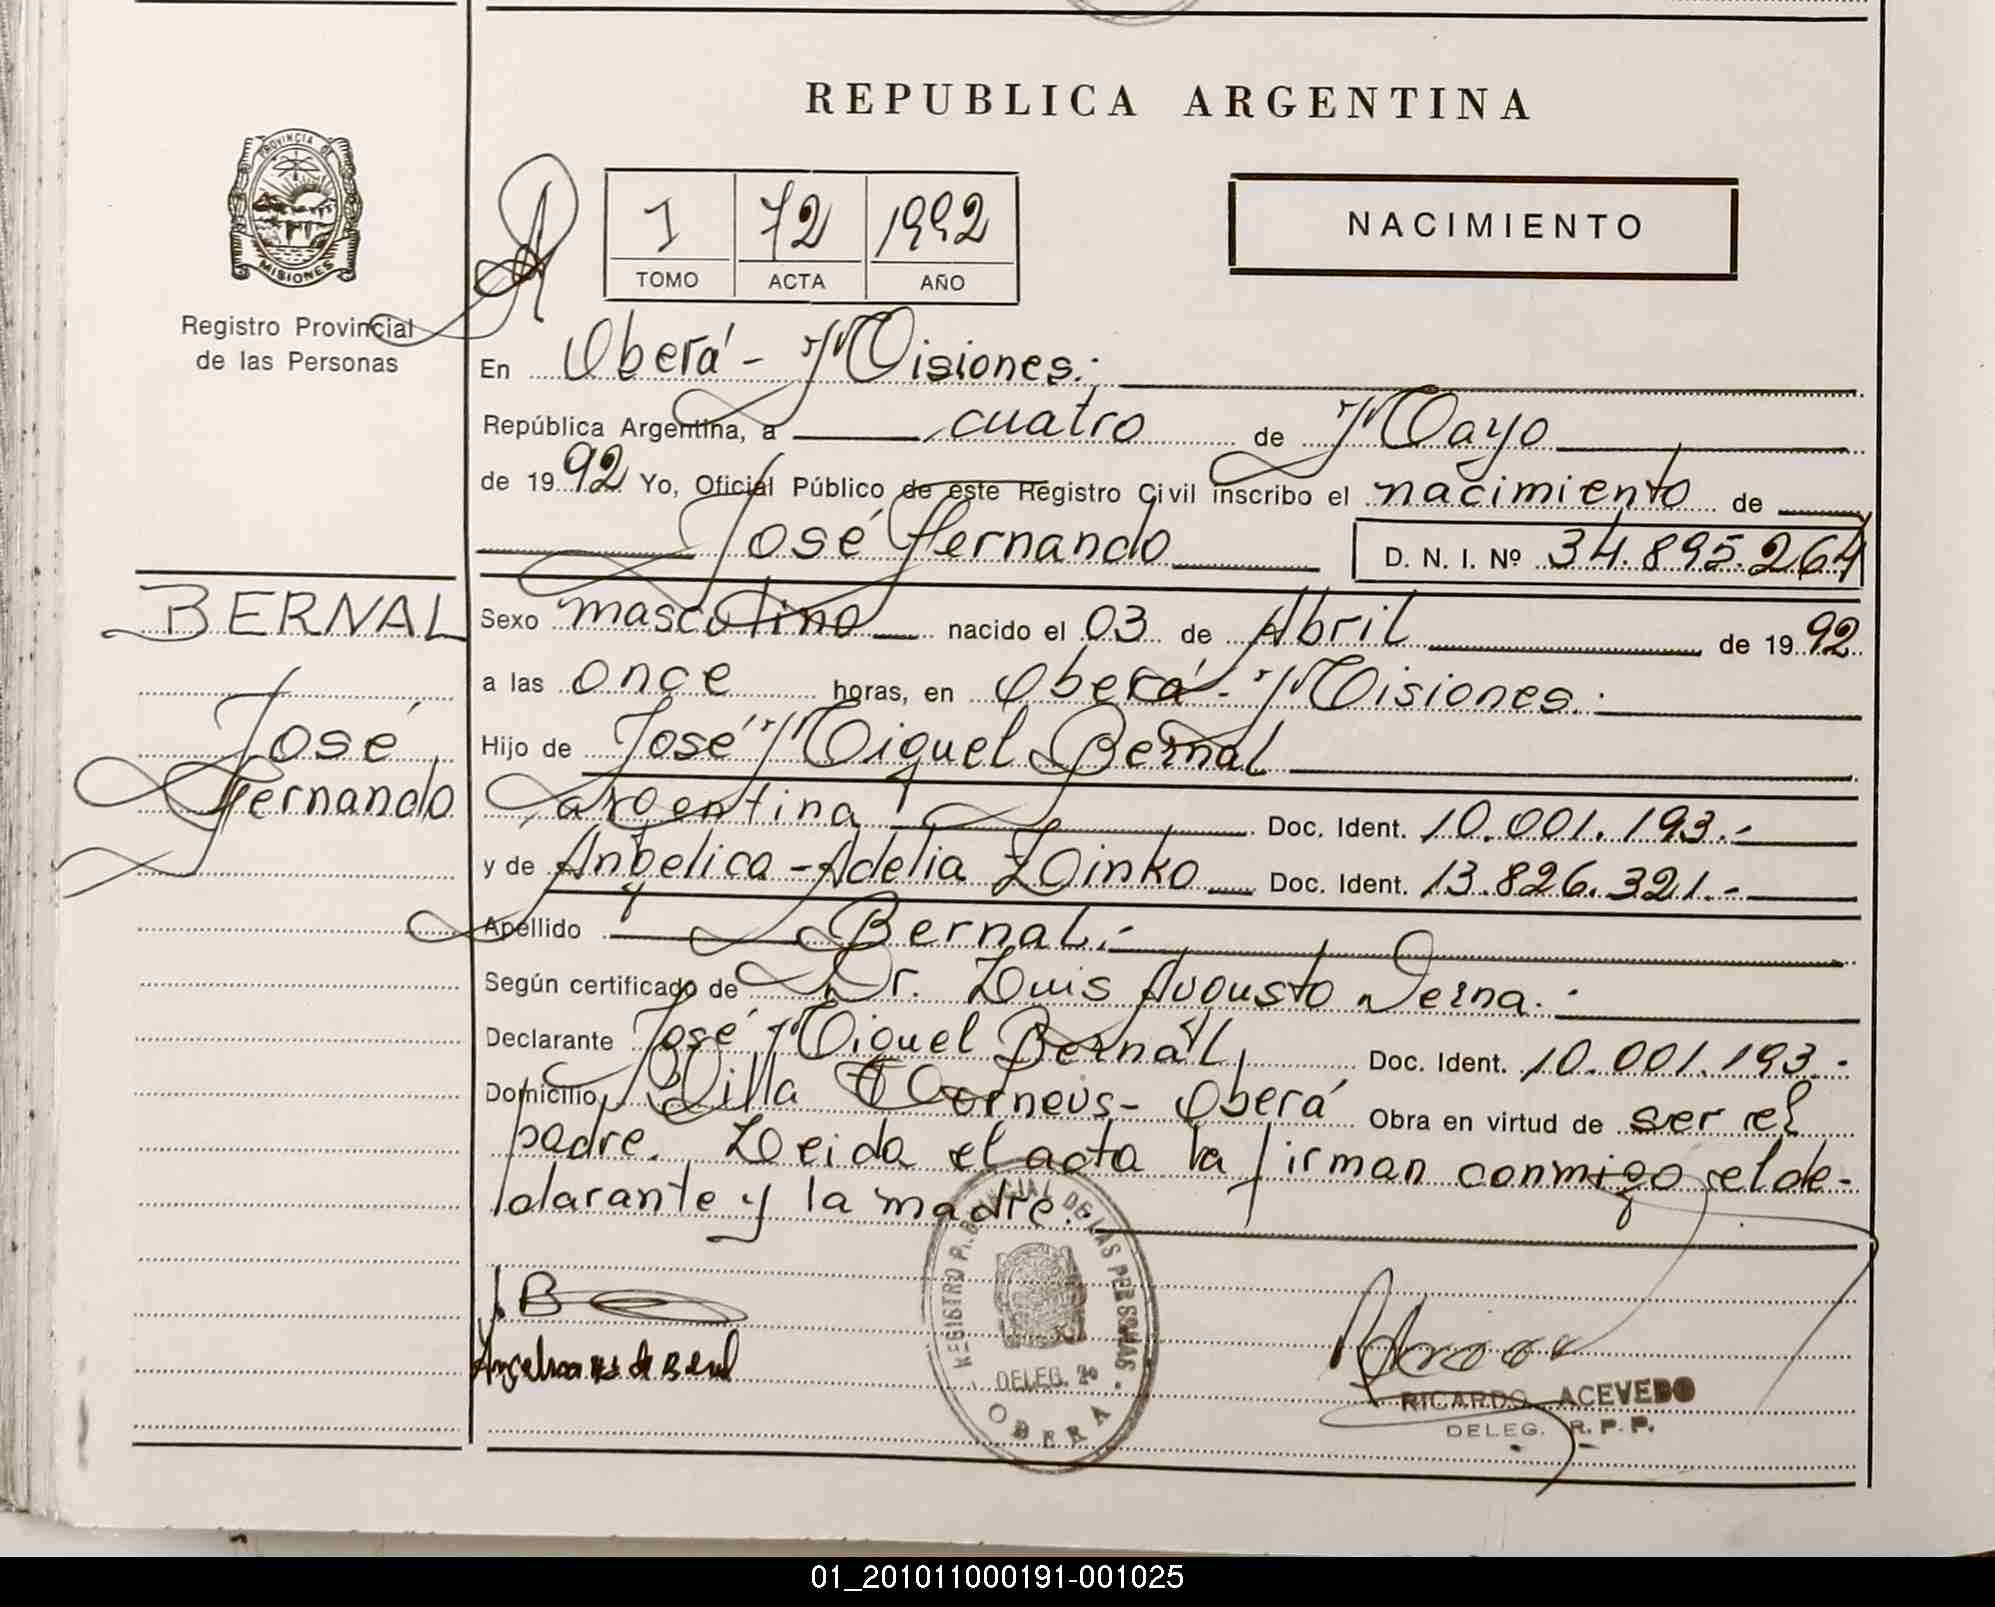 REPUBLICA ARGENTINA
PROVINCIA DE
MISIONES
Registro Provincial
de las Personas
1 72 1992
TOMO ACTA AÑO
NACIMIENTO
En Oberá - Misiones.-
República Argentina, a cuatro de Mayo
de 1992 Yo, Oficial Público de este Registro Civil inscribo el nacimiento de
José Hernando D. N. I. Nº 34.895.264
BERNAL
José
Hernando
Sexo masculino nacido el 03 de Abril de 1992
a las once horas, en Oberá - Misiones.-
Hijo de José Miguel Bernal
argentina Doc. Ident. 10.001.193.-
y de Angelica - Adelia Loinko Doc. Ident. 13.826.321.-
Apellido Bernal.-
Según certificado de Dr. Luis Augusto Derna.-
Declarante José Miguel Bernal Doc. Ident. 10.001.193.-
Domicilio Villa - Oberá Obra en virtud de ser el
padre. Leida el acta la firman conmigo el de-
clarante y la madre.-
REGISTRO PROVINCIAL DE LAS PERSONAS
DELEG.
OBERA
RICARDO ACEVEDO
DELEG. R. P. P.
01_201011000191-001025